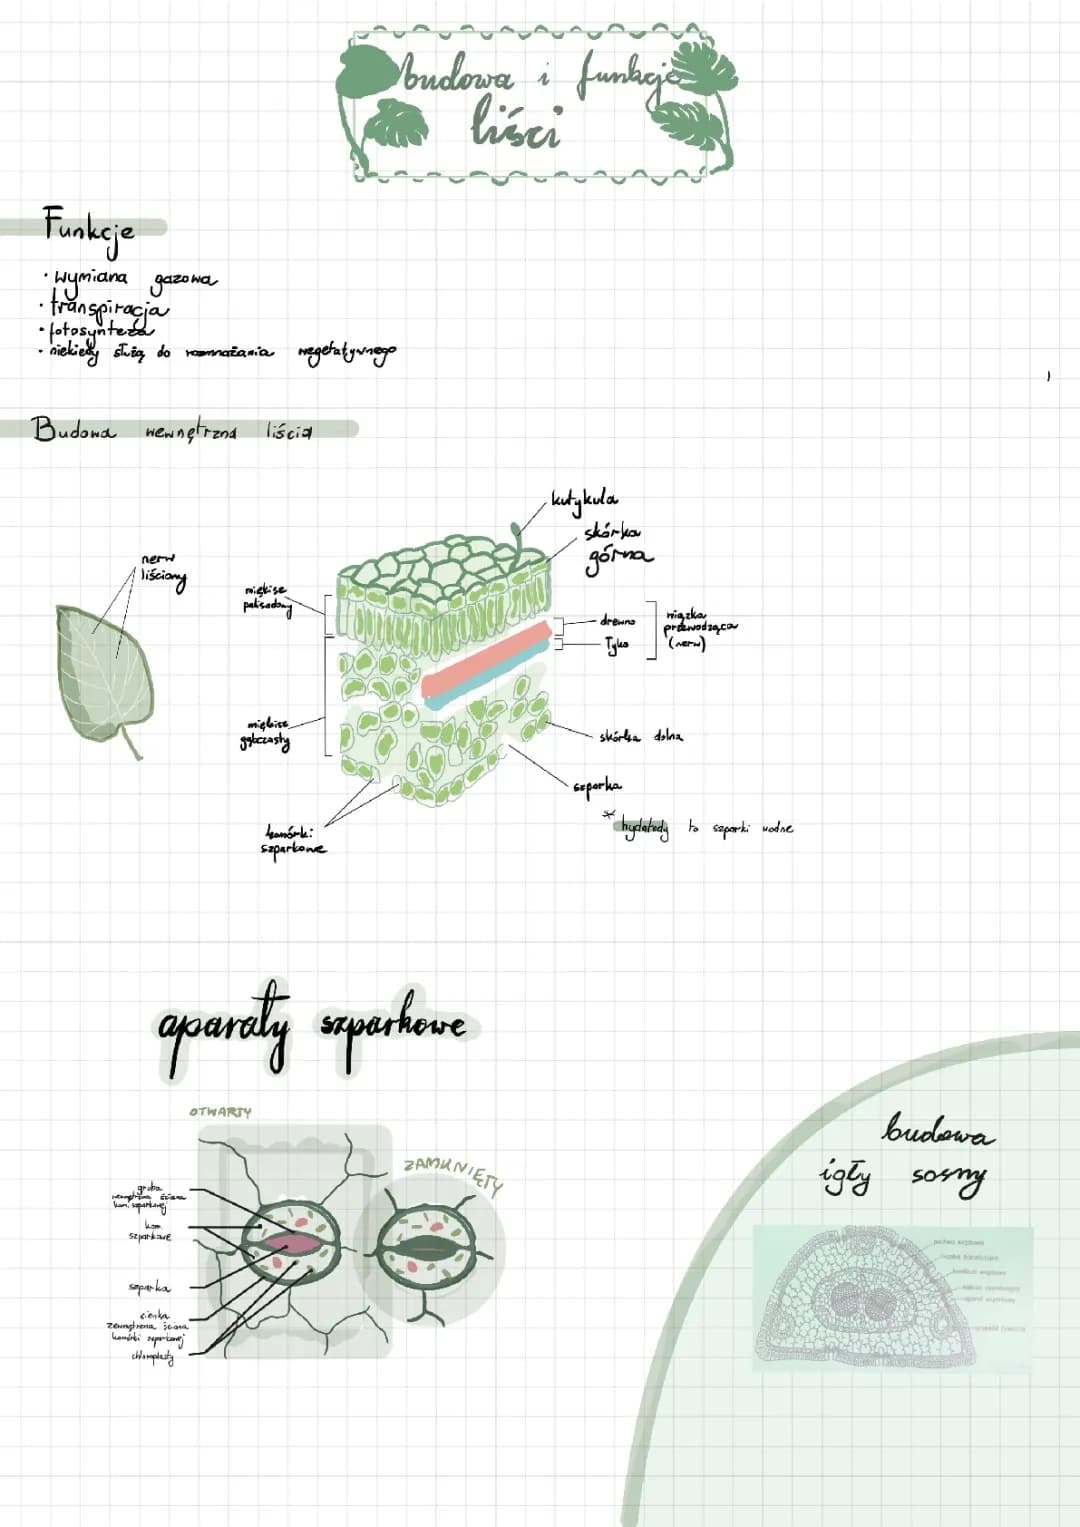 budowa i funkcje
liści
Funkcje
· wymiana gazowa
· transpiracja
· fotosynteza
· niekiedy służą do rozmnażania wegetatywnego
Budowa wewnętrzna liścia
nerw
liściowy
miękisz
palisadowy
miękisz
gąbczasty
komórki
szparkowe
kutykula
skórka
górna
drewno
Łyko
wiązka
przewodząca
(nerw)
skórka dolna
szparka
* hydatody to szparki wodne
aparaty szparkowe
OTWARTY
ZAMKNIĘTY
gruba
wewnętrzna ściana
kom. szparkowej
kom.
szparkowe
szparka
cienka
zewnętrzna ściana
komórki szparkowej
chloroplasty
budowa
igły sosny